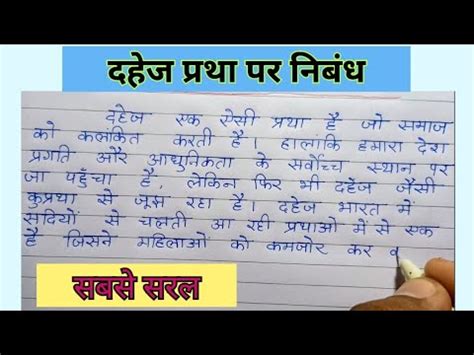 दहेज प्रथा पर निबंध
दहेज एक ऐसी प्रथा है जो समाज
को कलंकित करती है। हालांकि हमारा देश
प्रगति और आधुनिकता के सर्वोच्च स्थान पर
जा पहुँचा है, लेकिन फिर भी दहेज जैसी
कुप्रथा से जूस रहा है। दहेज भारत में
सदियों से चलती आ रही प्रथाओ में से एक
है जिसने महिलाओं को कमजोर कर
सबसे सरल